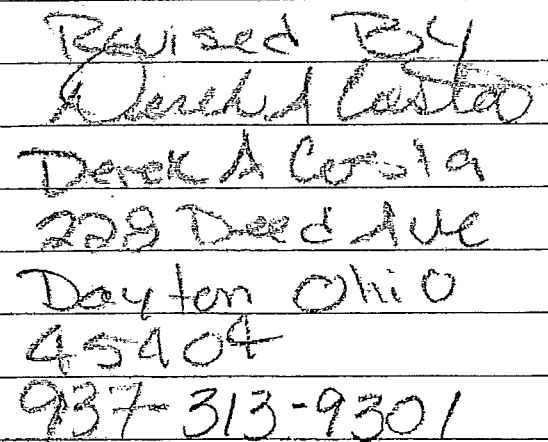 Revised By
Derek A Costa
Derek A Costa
228 Deed Ave
Dayton Ohio
45404
937-313-9301